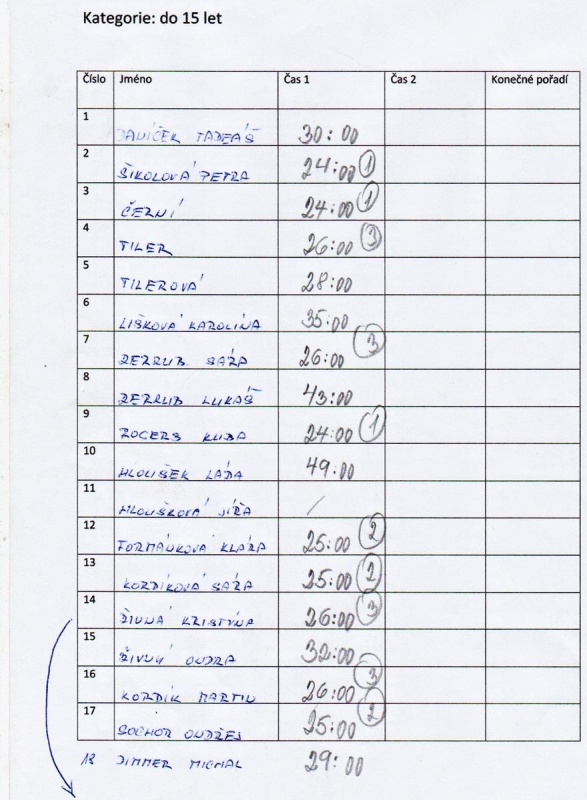 Kategorie: do 15 let
Číslo Jméno Čas 1 Čas 2 Konečné pořadí
1 DANÍČEK TADEÁŠ 30:00
2 ŠIKOLOVÁ PETRA 24:00 1
3 ČERNÍ 24:00 1
4 TILER 26:00 3
5 TILEROVÁ 28:00
6 LIŠKOVÁ KAROLÍNA 35:00
7 SÁRA 26:00 3
8 LUKÁŠ 43:00
9 ROGERS KUBA 24:00 1
10 HLOUŠEK LÁĎA 49:00
11 HLOUŠKOVÁ /
12 FORMÁNKOVÁ KLÁRA 25:00 2
13 KORDÍKOVÁ SÁRA 25:00 2
14 KRISTÝNA 26:00 3
15 ONDRA 32:00
16 KORDÍK MARTIN 26:00 3
17 SOCHOR ONDŘEJ 25:00 2
18 DIMMER MICHAL 29:00